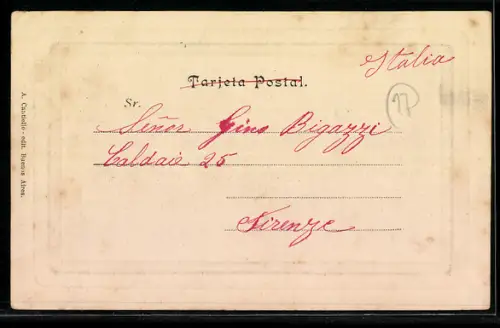 Italia
Tarjeta Postal.
77
Sr.
Señor Gino Bigazzi
Caldaie 25
Firenze
A. Canbello - edit. Buenos Aires.